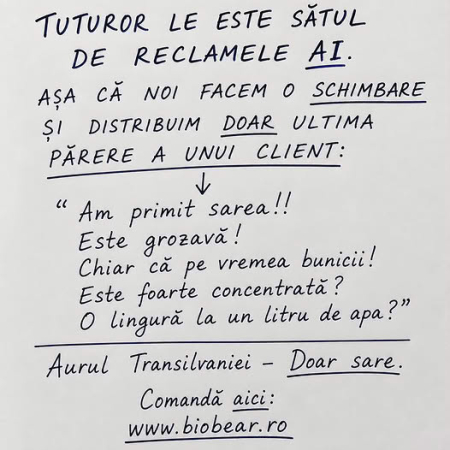 TUTUROR LE ESTE SĂTUL
DE RECLAMELE AI.
AȘA CĂ NOI FACEM O SCHIMBARE
ȘI DISTRIBUIM DOAR ULTIMA
PĂRERE A UNUI CLIENT:
“ Am primit sarea!!
Este grozavă!
Chiar că pe vremea bunicii!
Este foarte concentrată?
O lingură la un litru de apa?”
Aurul Transilvaniei – Doar sare.
Comandă aici:
www.biobear.ro